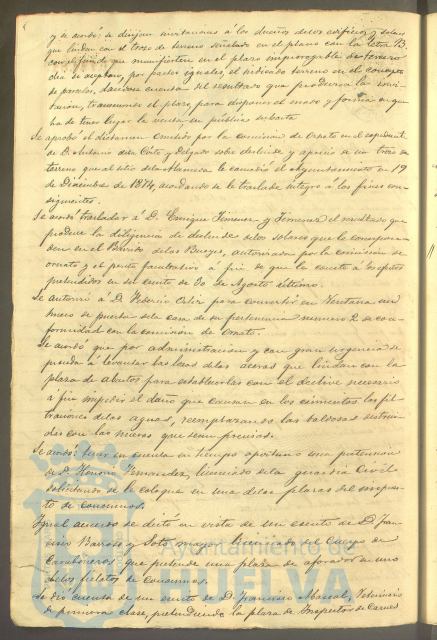 y se acordó: se dirijan invitaciones á los dueños de los edificios y solares
que lindan con el trozo de terreno señalado en el plano con la letra B.
con el fin de que manifiesten en el plazo improrrogable de tercero
dia si aceptan, por partes iguales, el indicado terreno en el concepto
de parcelas, dandose cuenta del resultado que produzca la invi-
tación, transcurrido el plazo para disponer el modo y forma en que
ha de tener lugar la venta en publica subasta
Se aprobó el dictamen emitido por la comision de Ornato en el expediente
de D. Antonio de la Corte y Delgado sobre deslinde y aprecio de un trozo de
terreno que al sitio de la Alameda le concedió el Ayuntamiento en 19
de Diciembre de 1874, acordando se le traslade integro á los fines con-
siguientes.
Se acordó trasladar á D. Enrique Jimenez y Jimenez el resultado que
produce la diligencia de deslinde de los solares que le correspon-
den en el Barrido de las Bueyes, autorizada por la comision de
ornato y el perito facultativo á fin de que la conste á los efectos
pretendidos en su escrito de 30 de Agosto último.
Se autorizó á D. Federico Ortiz para convertir en Ventana un
hueco de puerta de la casa de su pertenencia numero 2 de con-
formidad con la comision de Ornato.
Se acordó que por administracion y con gran urgencia se
proceda á levantar las losas de las aceras que lindan con la
plaza de abastos para establecerlas con el declive necesario
á fin impedir el daño que causan en los cimientos las fil-
traciones de las aguas, reemplazando las baldosas destrui-
das con las nuevas que sean precisas.
Se acordó: tener en cuenta en tiempo oportuno una pretension
de D. Fernandez, licenciado de la guardia Civil
solicitando se le coloque en una de las plazas del impues-
to de consumos.
Igual acuerdo se dictó en vista de un escrito de D. Fran-
cisco Barroso y Soto mayor licenciado del Cuerpo de
Carabineros que pretende una plaza de aforador en uno
de los fielatos de consumos.
Se dió cuenta de un escrito de D. Francisco Veterinario
de primera clase, pretendiendo la plaza de Inspector de Carnes
Ayuntamiento de
HUELVA